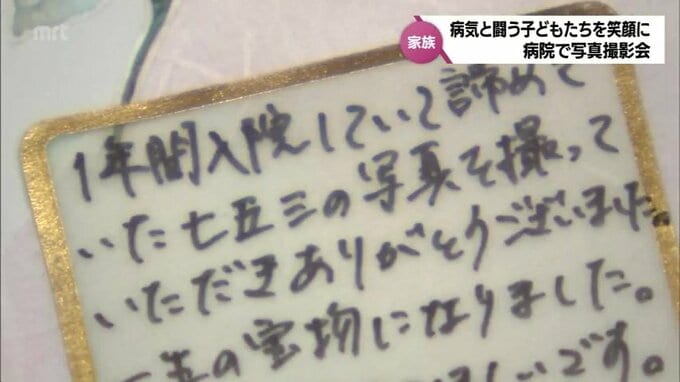 mrt
家族
病気と闘う子どもたちを笑顔に
病院で写真撮影会
1年間入院していて諦めて
いた七五三の写真を撮って
いただきありがとうございました。
の宝物になりました。
しいです。